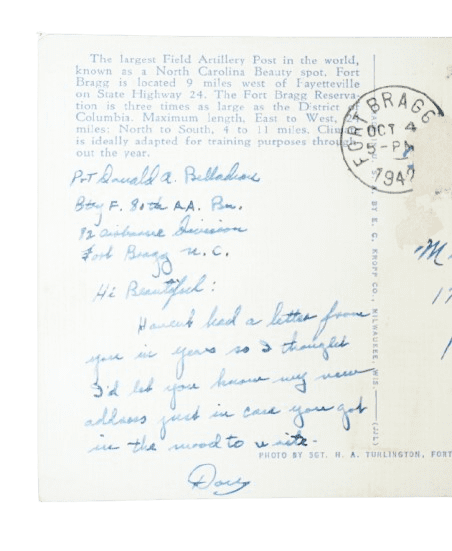 The largest Field Artillery Post in the world,
known as a North Carolina Beauty spot. Fort
Bragg is located 9 miles west of Fayetteville
on State Highway 24. The Fort Bragg Reserva-
tion is three times as large as the District of
Columbia. Maximum length, East to West,
miles; North to South, 4 to 11 miles.
is ideally adapted for training purposes
out the year.
FORT BRAGG
OCT 4
5-PM
194
Pvt Donald A.
Bty F. 80th A.A. Bn.
82 Airborne Division
Fort Bragg N.C.
Hi Beautiful:
Haven't had a letter from
you in years so I thought
I'd let you know my new
address just in case you got
in the mood to write.
BY E. C. KROPP CO., MILWAUKEE, WIS.
(JJL)
PHOTO BY SGT. H. A. TURLINGTON, FORT